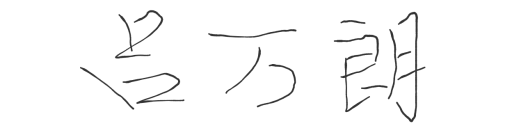 吕万朗